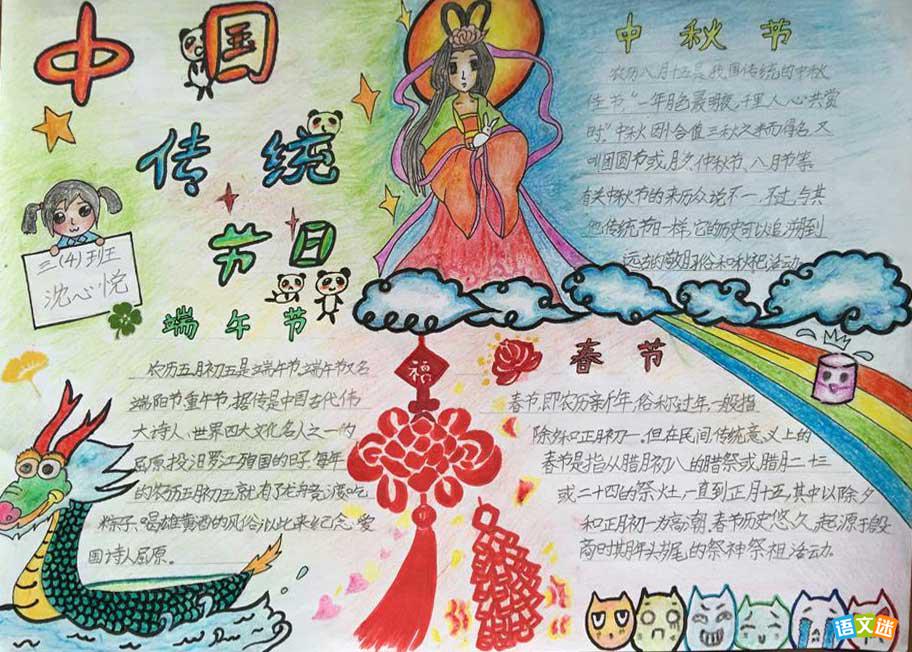 中国
传统
节日
三(4)班
沈心悦
端午节
农历五月初五是端午节,端午节又名
端阳节、重午节,据传是中国古代伟
大诗人、世界四大文化名人之一的
屈原投汨罗江殉国的日子,每年
的农历五月初五就有了龙舟竞渡,吃
粽子、喝雄黄酒的风俗;以此来纪念爱
国诗人屈原。
中秋节
农历八月十五是我国传统的中秋
佳节"一年月色最明夜,千里人心共赏
时"中秋因恰值三秋之半而得名,又
叫团圆节或月夕、仲秋节、八月节等
有关中秋节的来历众说不一,不过,与其
他传统节日一样,它的历史可以追溯到
远古的敬月习俗和秋祀活动
春节
春节,即农历新年,俗称过年,一般指
除夕和正月初一。但在民间传统意义上的
春节是指从腊月初八的腊祭或腊月二十三
或二十四的祭灶,一直到正月十五,其中以除夕
和正月初一为高潮。春节历史悠久,起源于殷
商时期年头岁尾的祭神祭祖活动。
福
语文迷